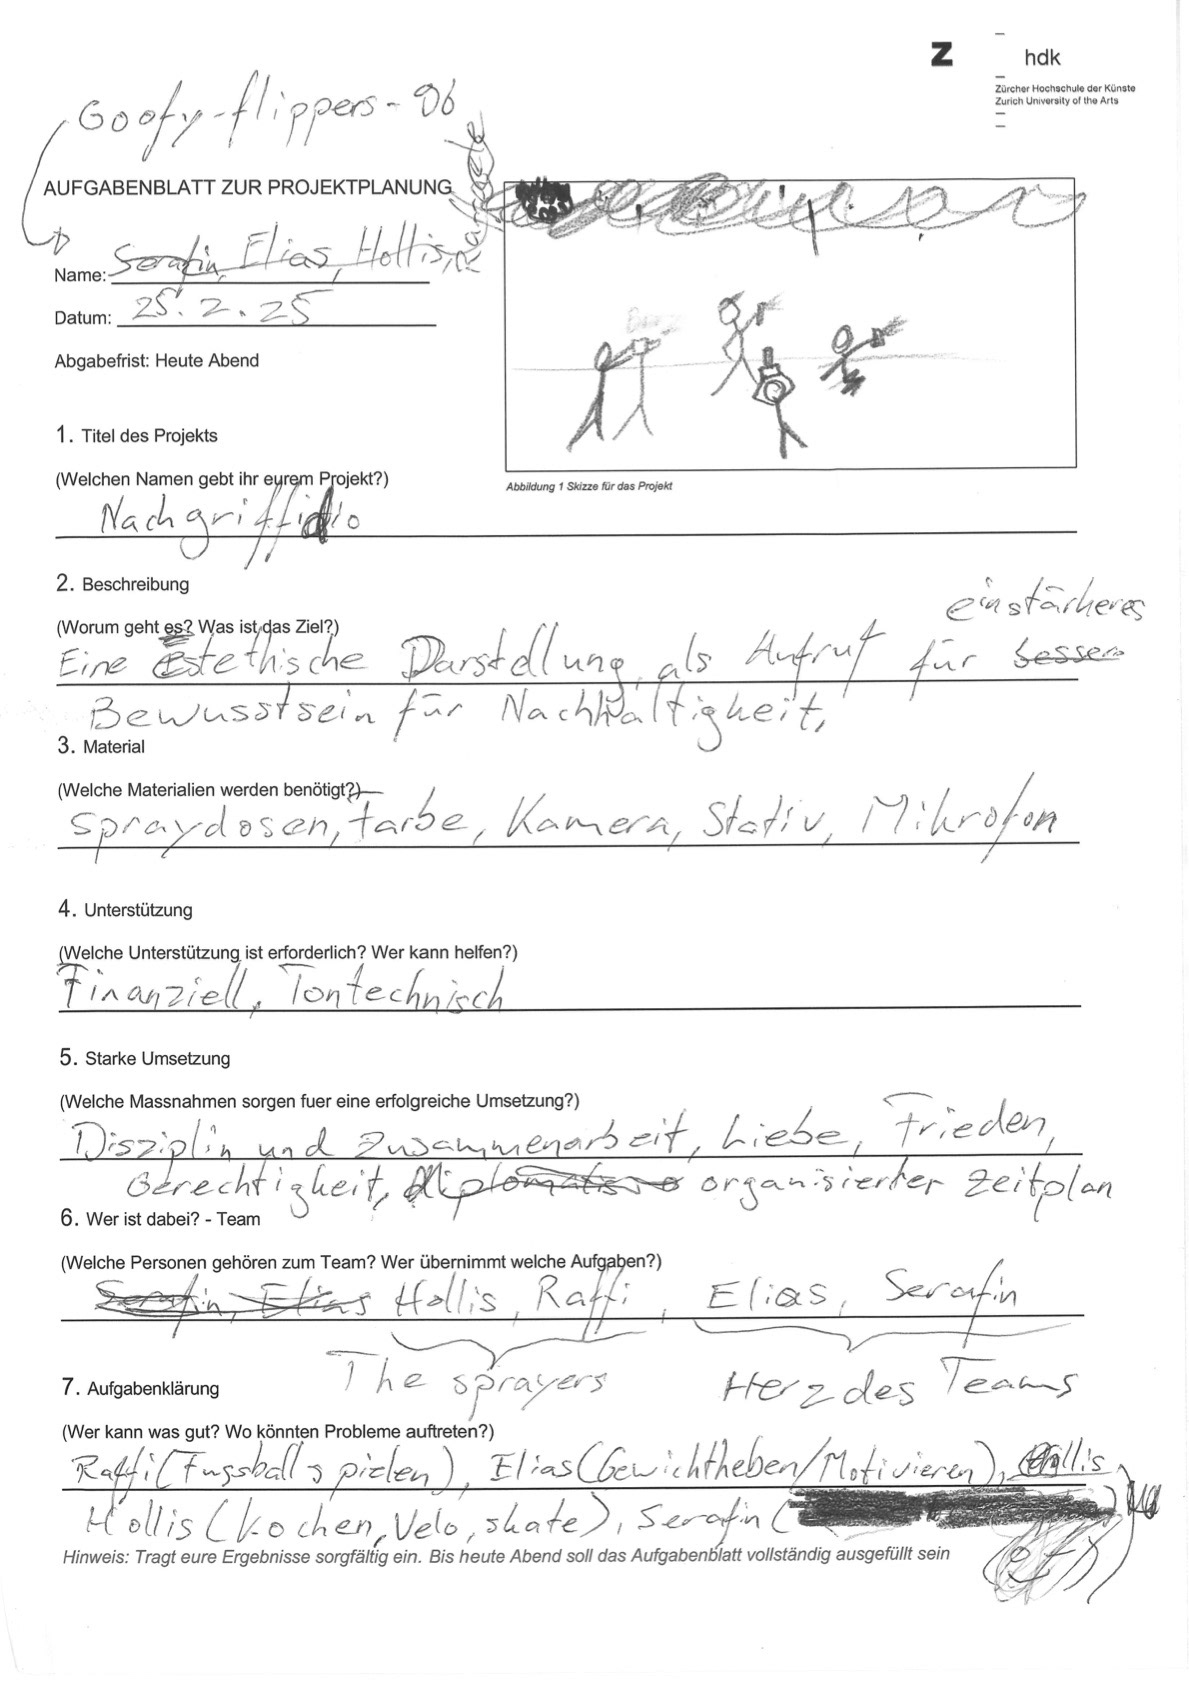 Z hdk
Zürcher Hochschule der Künste
Zurich University of the Arts
Goofy-flippers-96
AUFGABENBLATT ZUR PROJEKTPLANUNG
Name: Serafin, Elias, Hollis,
Datum: 25.2.25
Abgabefrist: Heute Abend
Abbildung 1 Skizze für das Projekt
1. Titel des Projekts
(Welchen Namen gebt ihr eurem Projekt?)
Nachgriffidio
2. Beschreibung
(Worum geht es? Was ist das Ziel?)
einstärkeres
Eine Estethische Darstellung, als Aufruf für besser
Bewusstsein für Nachhaltigkeit,
3. Material
(Welche Materialien werden benötigt?)
Spraydosen, farbe, Kamera, Stativ, Mikrofon
4. Unterstützung
(Welche Unterstützung ist erforderlich? Wer kann helfen?)
Finanziell, Tontechnisch
5. Starke Umsetzung
(Welche Massnahmen sorgen fuer eine erfolgreiche Umsetzung?)
Disziplin und Zusammenarbeit, Liebe, Frieden,
Gerechtigkeit, organisierter Zeitplan
6. Wer ist dabei? - Team
(Welche Personen gehören zum Team? Wer übernimmt welche Aufgaben?)
Serafin, Elias Hollis, Raffi, Elias, Serafin
The sprayers Herz des Teams
7. Aufgabenklärung
(Wer kann was gut? Wo könnten Probleme auftreten?)
Raffi (Fussball spielen), Elias (Gewichtheben/Motivieren), Hollis
Hollis (kochen, Velo, skate), Serafin (
Hinweis: Tragt eure Ergebnisse sorgfältig ein. Bis heute Abend soll das Aufgabenblatt vollständig ausgefüllt sein